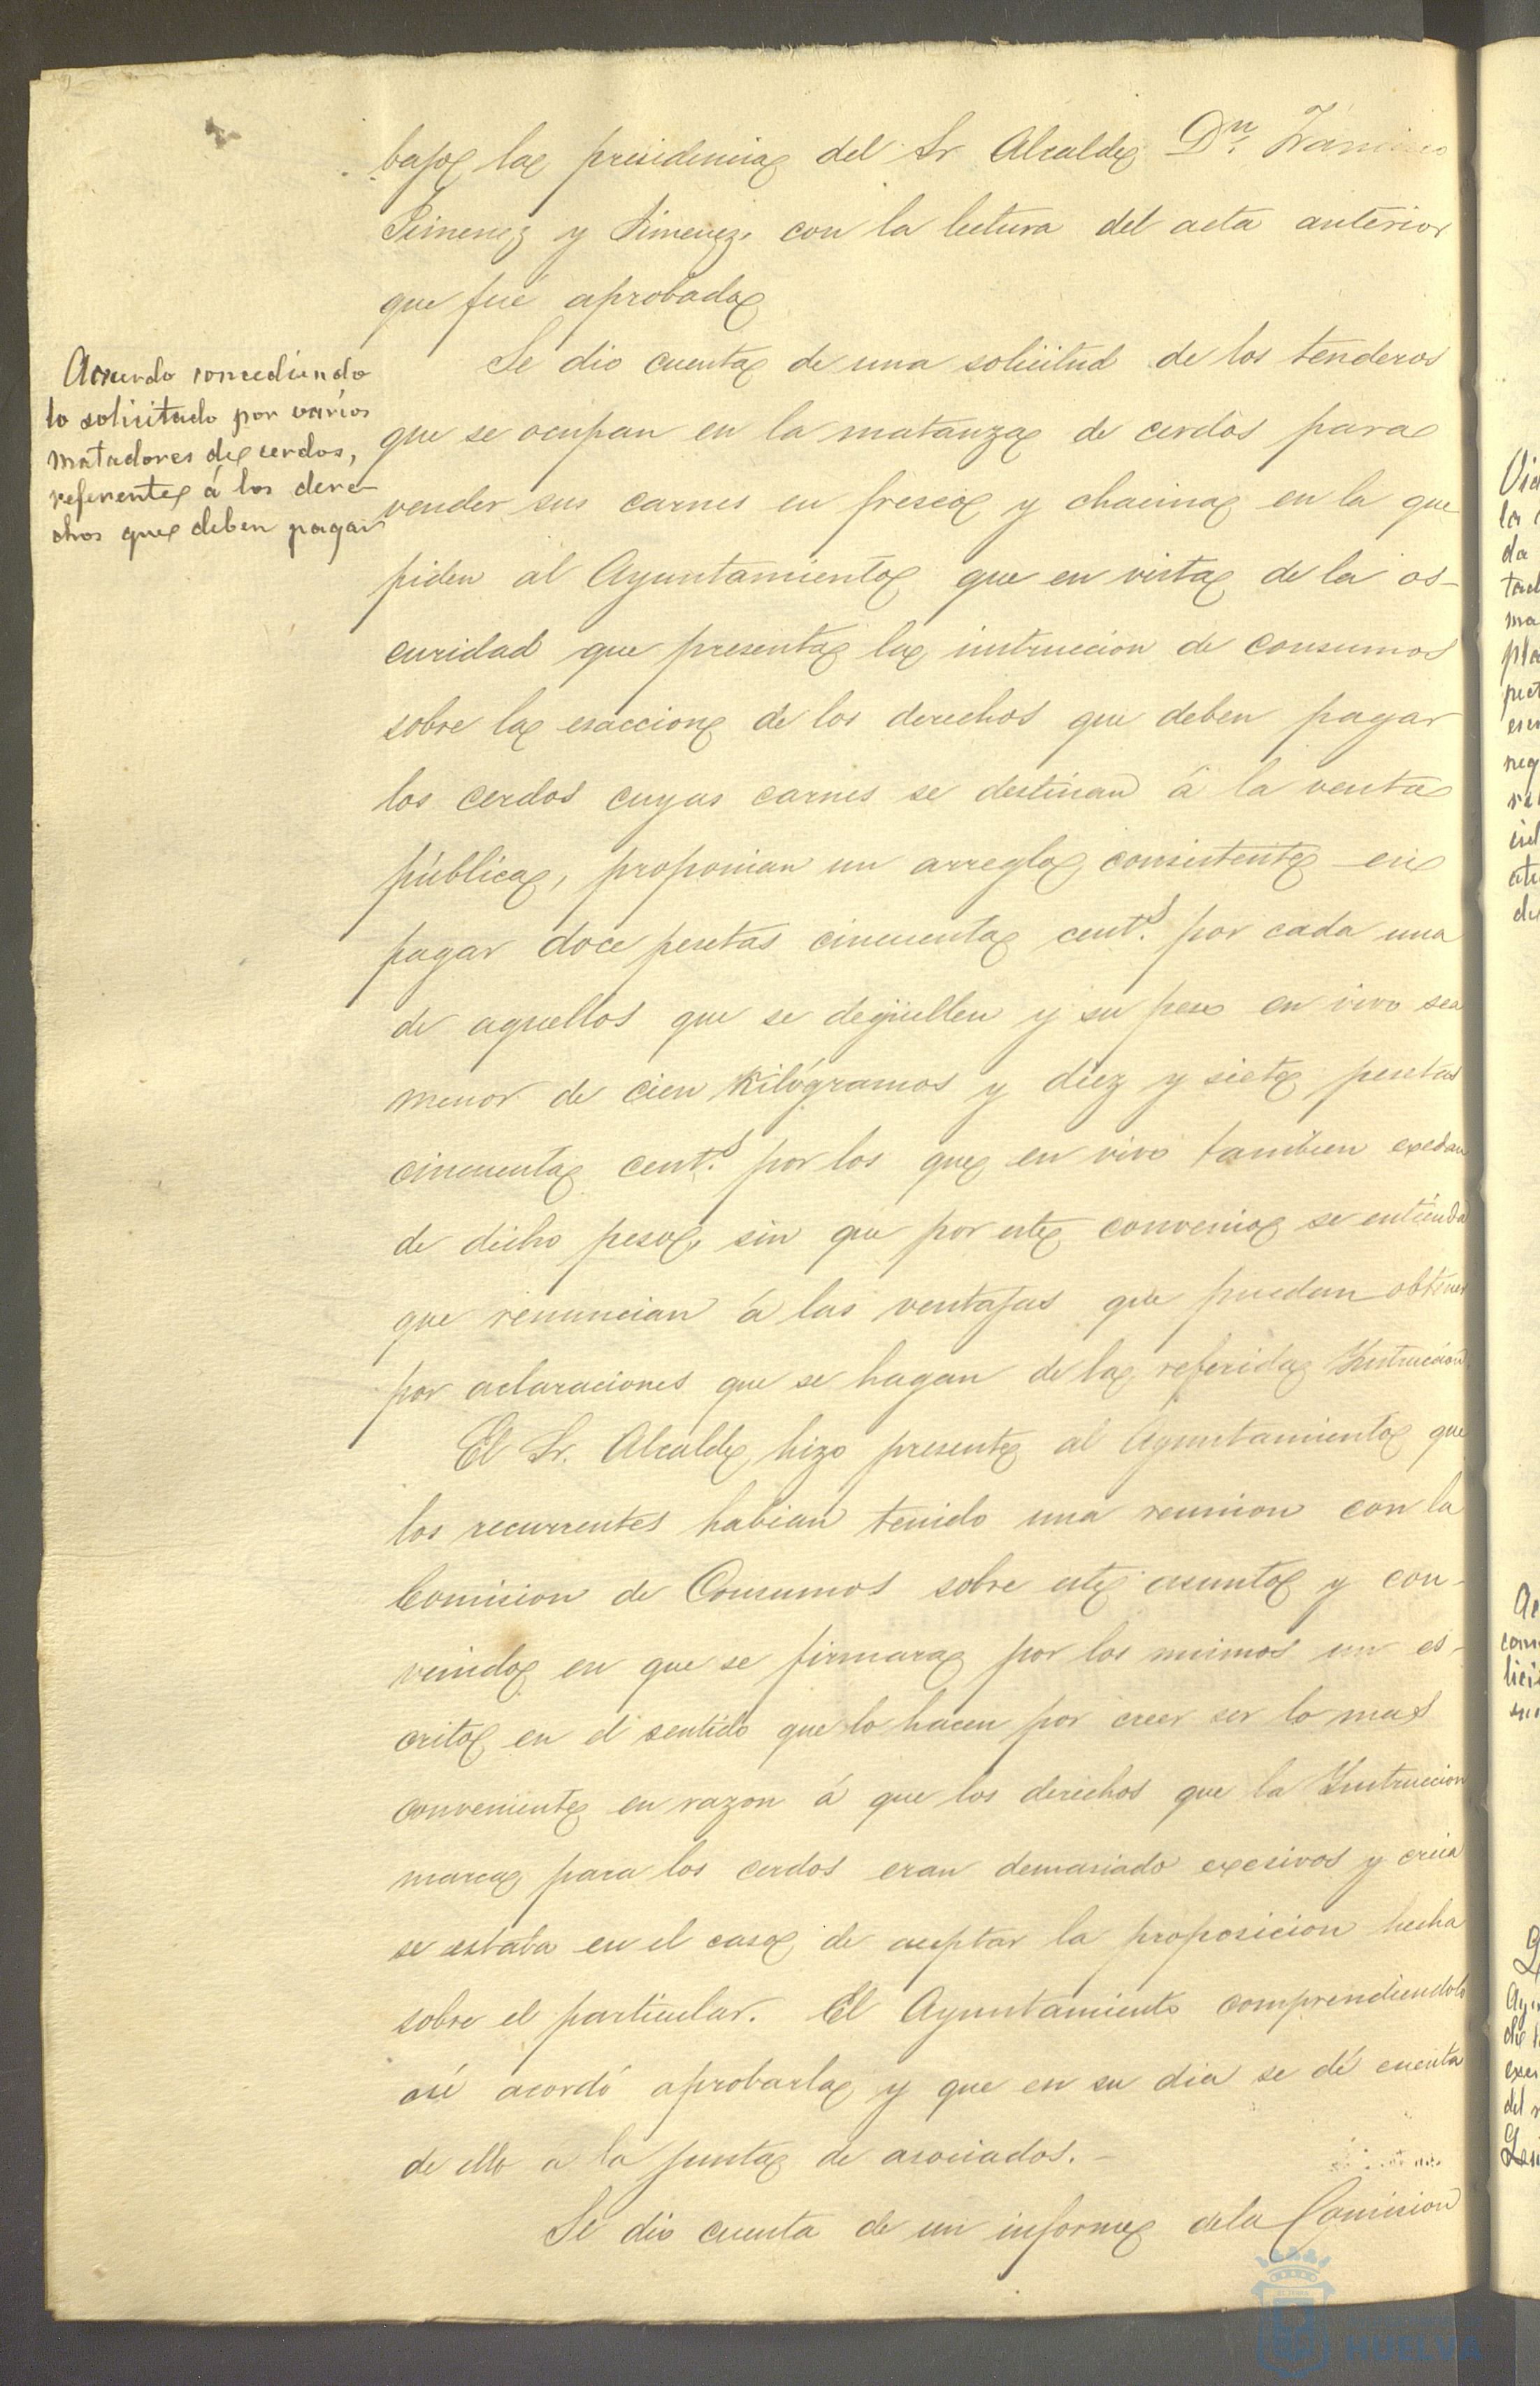 bajo la presidencia del Sr Alcalde Dn. Francisco
Jimenez y Jimenez, con la lectura del acta anterior
que fué aprobada
Acuerdo concediendo
lo solicitado por varios
matadores de cerdos,
referente á los dere-
chos que deben pagar
Se dio cuenta de una solicitud de los tenderos
que se ocupan en la matanza de cerdos para
vender sus carnes en fresco y chacina en la que
piden al Ayuntamiento que en vista de la os-
curidad que presenta la instruccion de consumos
sobre la esaccion de los derechos que deben pagar
los cerdos cuyas carnes se destinan á la venta
pública, proponian un arreglo consistente en
pagar doce pesetas cincuenta cents. por cada una
de aquellos que se degüellen y su peso en vivo sea
menor de cien Kilógramos y diez y siete pesetas
cincuenta cents. por los que en vivo tambien exedan
de dicho peso, sin que por este convenio se entienda
que renuncian á las ventajas que puedan obtener
por aclaraciones que se hagan de la referida Instruccion
El Sr. Alcalde hizo presente al Ayuntamiento que
los recurrentes habian tenido una reunion con la
Comision de Consumos sobre este asunto y con-
venido en que se firmara por los mismos un es-
crito en el sentido que lo hacen por creer ser lo mas
conveniente en razon á que los derechos que la Instruccion
marca para los cerdos eran demasiado exesivos y creia
se estaba en el caso de aceptar la proposicion hecha
sobre el particular. El Ayuntamiento comprendiendolo
así acordó aprobarla y que en su dia se dé cuenta
de ello a la junta de asociados.-
Se dio cuenta de un informe dela Comision
HUELVA